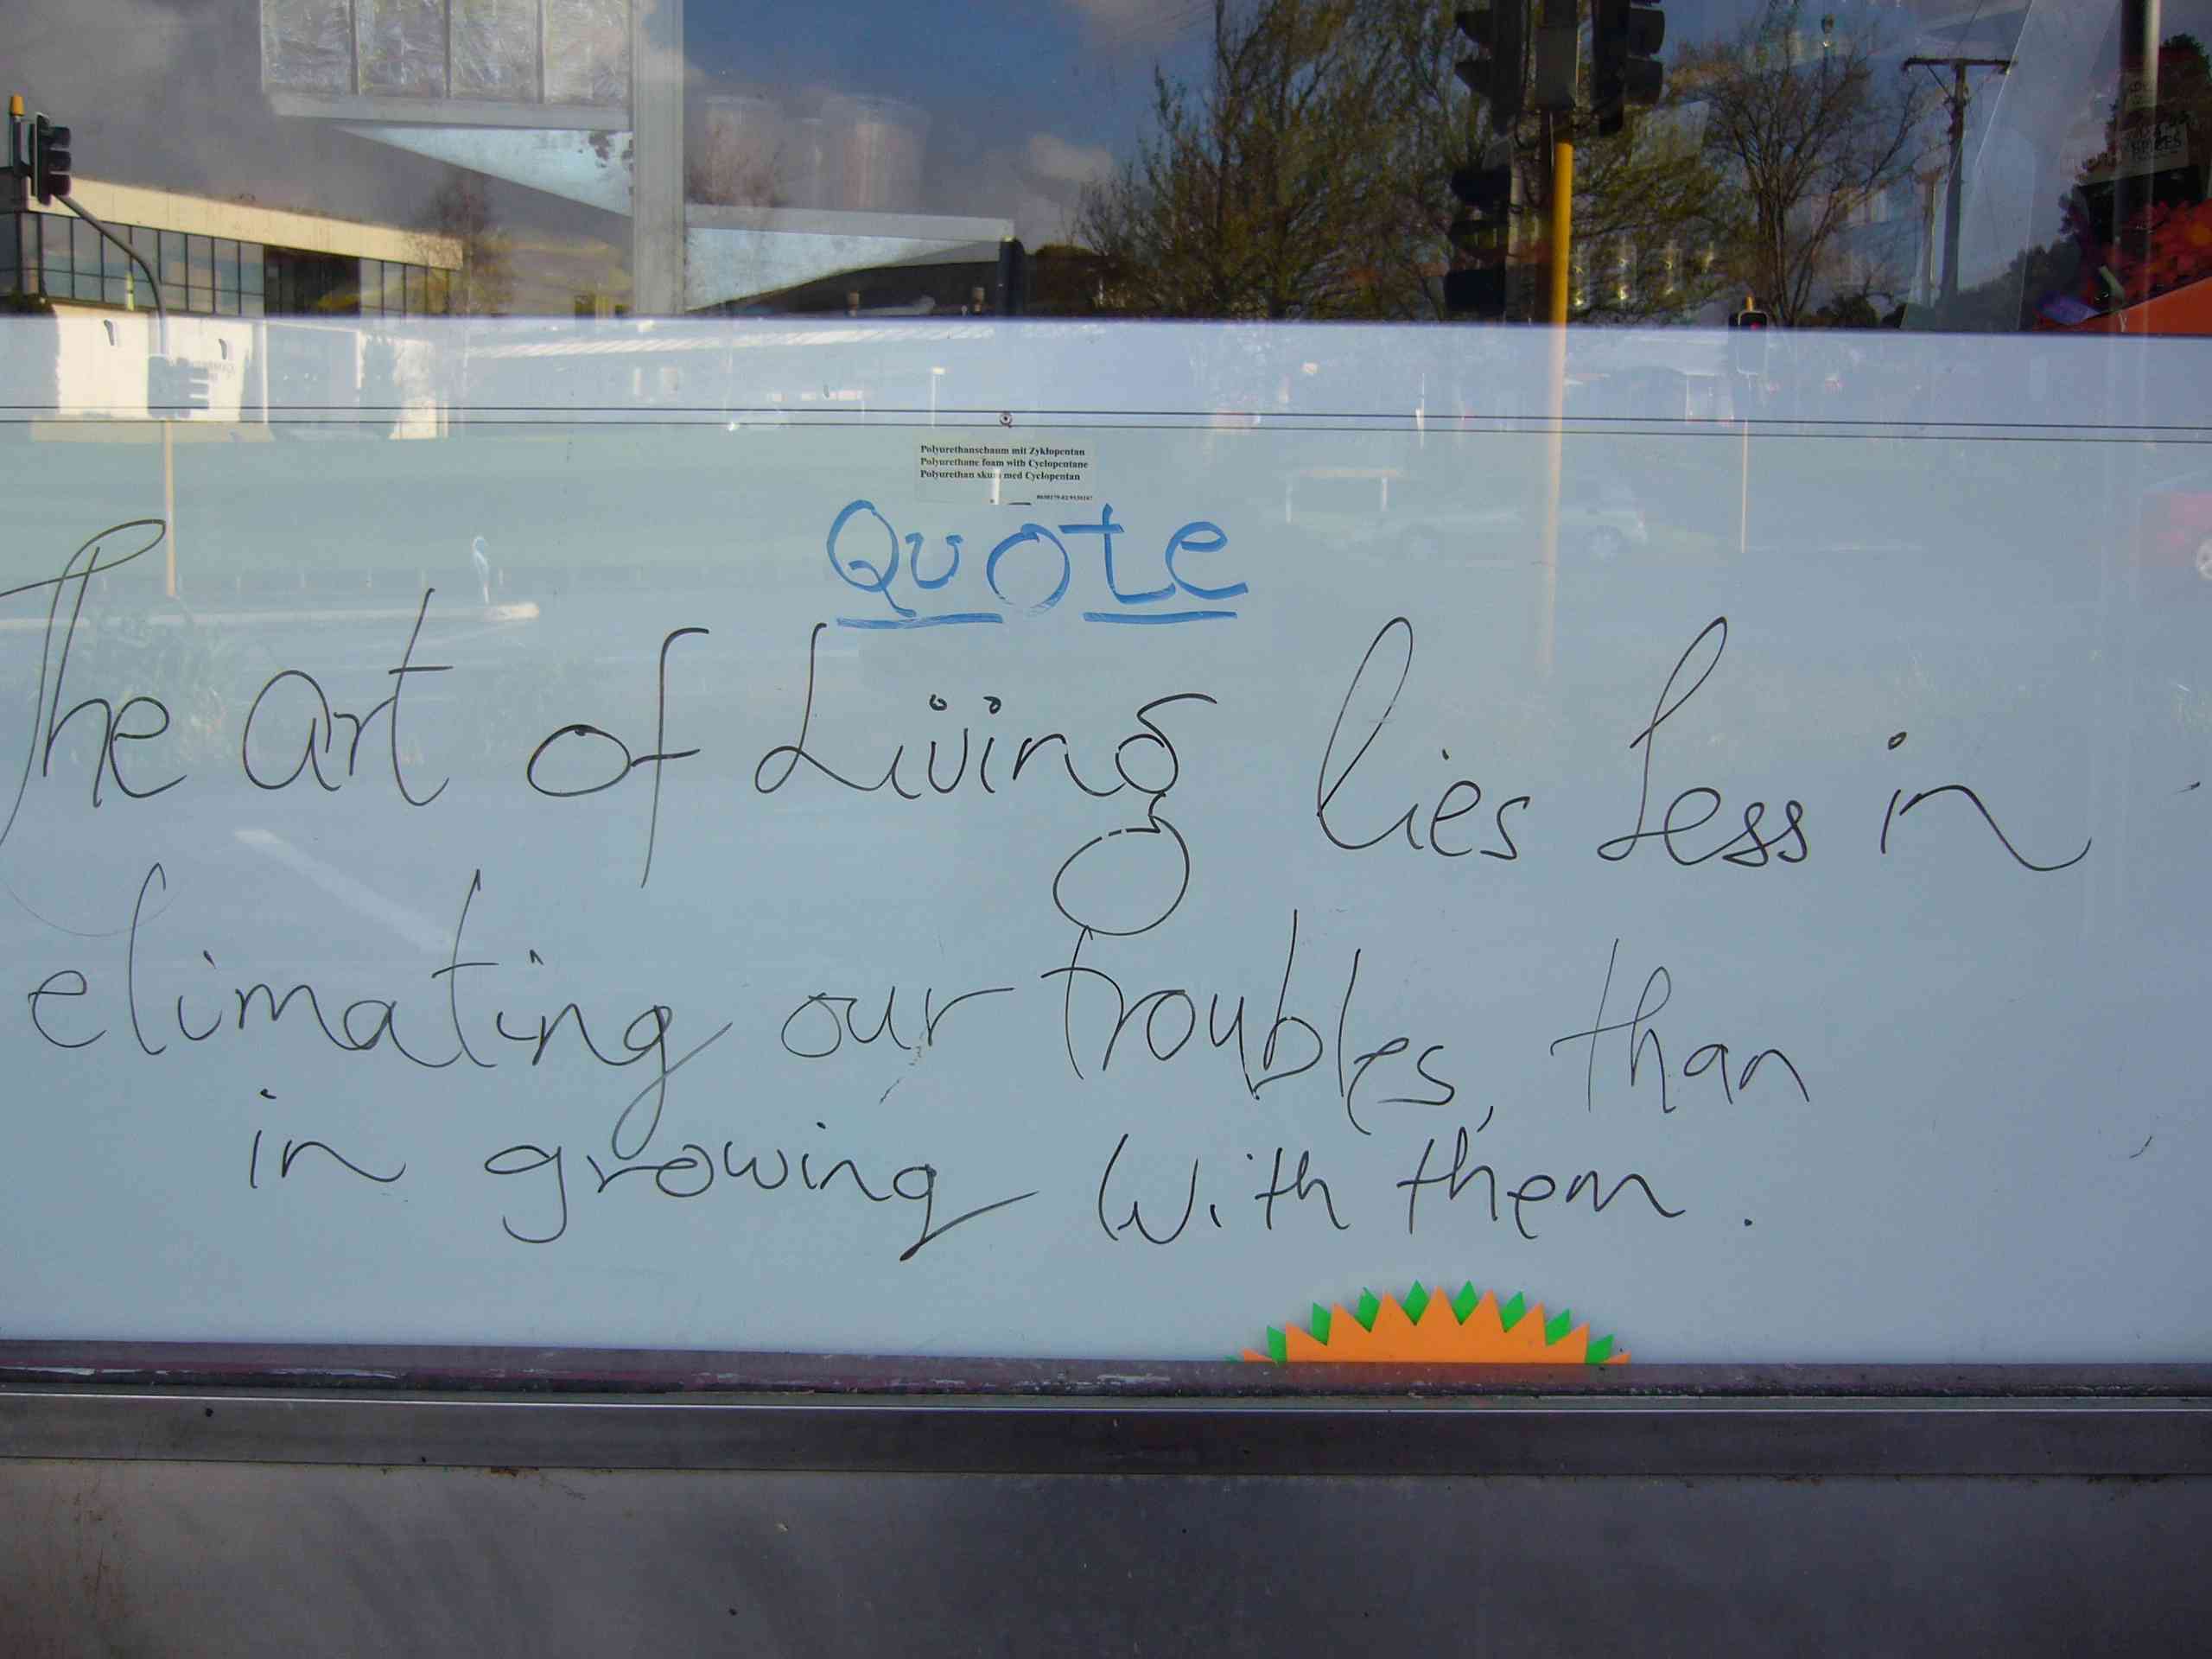 Polyurethanschaum mit Zyklopentan
Polyurethane foam with Cyclopentane
Polyurethan skum med Cyclopentan
Quote
The art of Living lies Less in
elimating our troubles, than
in growing with them.